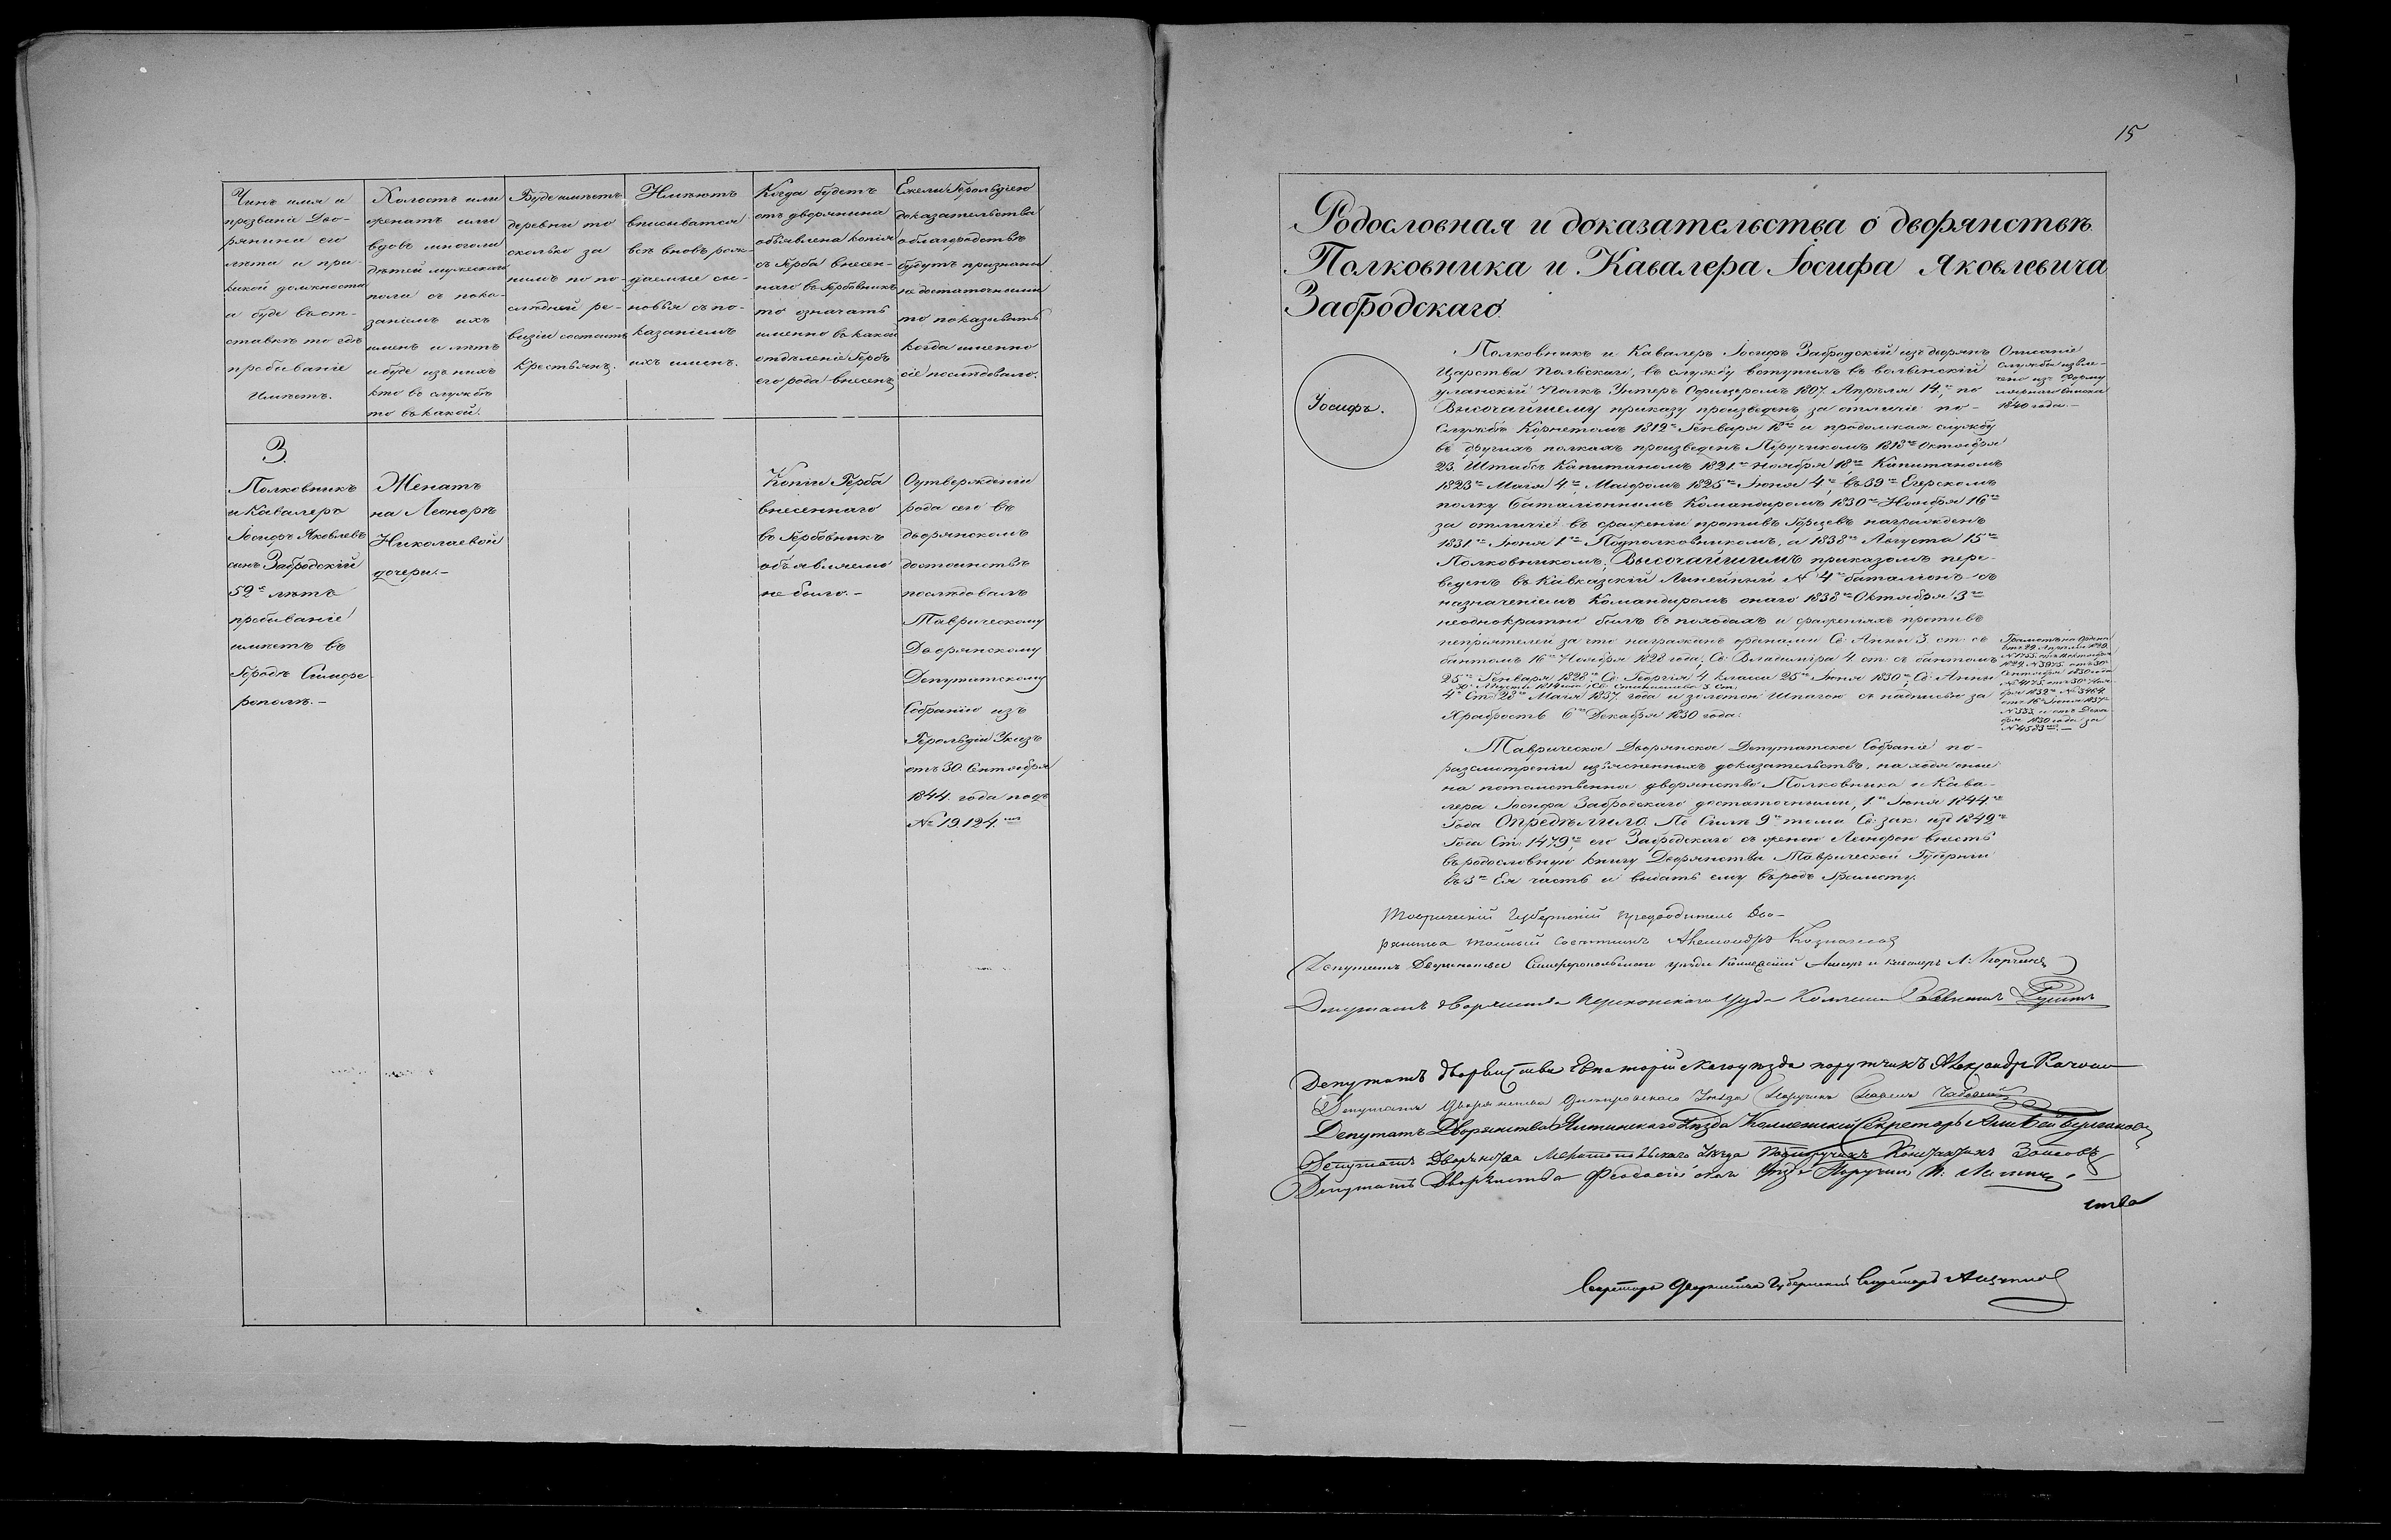 Чинъ имя и
прозваніе Дво-
рянина его
лѣта и при
какой должности
и буде въ от-
ставкѣ то гдѣ
пребываніе
Имѣетъ.
Холостъ или
женатъ или
вдовъ многоли
дѣтей мужескаго
пола съ пока-
заніемъ ихъ
именъ и лѣтъ
и буде изъ нихъ
кто въ службѣ
то въ какой.
Буде имѣетъ
деревни то
сколько за
нимъ по по-
слѣдней ре-
визіи состоитъ
крестьянъ.
Имѣютъ
вписыватся
всѣ вновь рож-
даемые сы-
новья съ по-
казаніемъ
ихъ именъ.
Когда будетъ
отъ дворянина
объявлена копія
съ Герба внесен-
наго въ Гербовникъ
то означать
именно въ какой
отдѣленіе Гербъ
его рода внесенъ
Ежели Герольдіею
доказательства
о благородствѣ
будутъ признаны
не достаточными
то показывать
когда именно
сіе последовало.
3.
Полковникъ
и Кавалеръ
Іосифъ Яковлевъ
сынъ Забродскій
52 лѣтъ
пребываніе
имѣетъ въ
Городѣ Симфе
рополѣ.-
Женатъ
на Леонорѣ
Николаевой
дочери.-
Копіи Герба
внесеннаго
въ Гербовникъ
объявляемо
не было.-
О утвержденіи
рода сего въ
дворянскомъ
достоинствѣ
послѣдовалъ
Таврическому
Дворянскому
Депутатскому
Собранію изъ
Герольдіи Указъ
отъ 30. Сентября
1844. года подъ
№ 19.124.
15
Родословная и доказательства о дворянствѣ
Полковника и Кавалера Іосифа Яковлевича
Забродскаго.
Іосифъ.
Полковникъ и Кавалеръ Іосифъ Забродскій изъ дворянъ
Царства Польскаго, въ службу вступилъ въ волынскій
уланскій Полкъ Унтеръ Офицеромъ 1807. Апрѣля 14, по
Высочайшему приказу произведенъ за отличіе по-
службѣ Корнетомъ 1812 Генваря 18 и продолжая службу
въ другихъ полкахъ произведенъ Поручикомъ 1818 Октября
23, Штабсъ Капитаномъ 1821. ноября 18, Капитаномъ
1823 Маія 4, Маіоромъ 1825 Іюня 4, въ 39 Егерскомъ
полку баталіоннымъ Командиромъ 1830 Ноября 16
за отличіе въ сраженіи противъ Горцевъ награжденъ
1831 Іюня 1 Подполковникомъ, а 1838 Августа 15
Полковникомъ, Высочайшимъ приказомъ пере-
веденъ въ Кавказскій Линейный № 4 баталіонъ съ
назначеніемъ Командиромъ онаго 1838 Октября 3
неоднократно былъ въ походахъ и сраженіяхъ противъ
непріятелей за что награжденъ орденами Св: Анны 3. ст: съ
бантомъ 16 Ноября 1828 года, Св: Владиміра 4. ст: съ бантомъ
25 Генваря 1828 Св: Георгія 4 класса 25 Іюня 1830, Св: Анны
Св: Станислава 3. Ст.
4 Ст: 28 Маія 1837. года и золотою Шпагою съ надписью за
Храбрость 6 Декабря 1830 года.
Описаніе
службы извле-
чено изъ Форму
лярнаго списка
1840 года.-
Грамоты на Ордена
Таврическое Дворянское Депутатское Собраніе по-
разсмотреніи изъясненныхъ доказательствъ, находя оные
на потомственное дворянство Полковника и Кава-
лера Іосифа Забродскаго достаточными, 1 Іюня 1844
Года Опредѣлило. По Силѣ 9 тома Св: зак: изд 1842
Года Ст: 1479, его Забродскаго съ женою Леонорою внесть
въ родословную книгу Дворянства Таврической Губерніи
въ 3 Ея часть и выдать ему въ родъ Грамоту.
Таврическій Губернскій предводитель Дво-
рянства тайный Советникъ Александръ Казначеев
Депутатъ Дворянства Симферопольскаго уѣзда
Депутатъ дворянства Перекопскаго уезда
Депутатъ дворянства Евпаторійскаго уѣзда поручикъ Александръ
Депутатъ дворянства Днепровскаго Уѣзда Поручикъ
Депутатъ Дворянства Ялтинскаго Уѣзда Коллежскій Секретарь
Депутатъ Дворянства Мелитопольскаго Уѣзда Подпоручикъ Константинъ Зотовъ
Депутатъ Дворянства Феодосійскаго Уезда Поручикъ
Секретарь Дворянства Губернскій Секретарь